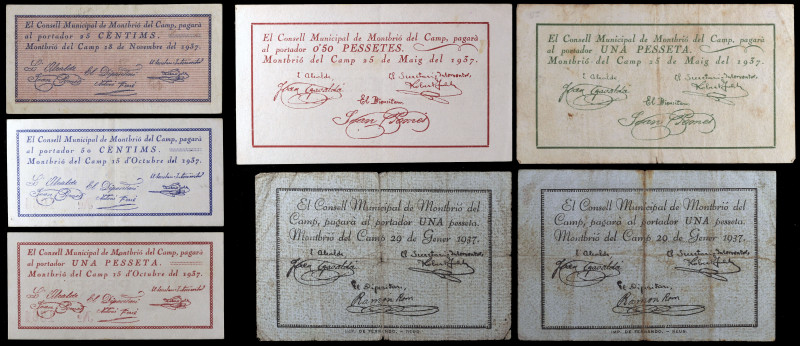 El Consell Municipal de Montbrió del Camp, pagarà
al portador 25 CENTIMS.
Montbrió del Camp 18 de Novembre del 1937.
L'Alcalde
El Dipositari
El Consell Municipal de Montbrió del Camp, pagarà
al portador 50 CENTIMS.
Montbrió del Camp 15 d'Octubre del 1937.
L'Alcalde
El Dipositari
El Consell Municipal de Montbrió del Camp, pagarà
al portador UNA PESSETA.
Montbrió del Camp 15 d'Octubre del 1937.
L'Alcalde
El Dipositari
El Consell Municipal de Montbrió del Camp, pagarà
al portador 0'50 PESSETES.
Montbrió del Camp 25 de Maig del 1937.
L'Alcalde,
El Secretari Interventor
El Dipositari
El Consell Municipal de Montbrió del Camp, pagarà
al portador UNA PESSETA.
Montbrió del Camp 25 de Maig del 1937.
L'Alcalde,
El Secretari Interventor
El Dipositari
El Consell Municipal de Montbrió del
Camp, pagarà al portador UNA pesseta.
Montbrió del Camp 29 de Gener 1937.
L'Alcalde
El Secretari Interventor
El Dipositari,
Ramon Rom
IMP. DE FERRANDO. - REUS.
El Consell Municipal de Montbrió del
Camp, pagarà al portador UNA pesseta.
Montbrió del Camp 29 de Gener 1937.
L'Alcalde
El Secretari Interventor
El Dipositari,
Ramon Rom
IMP. DE FERRANDO. - REUS.